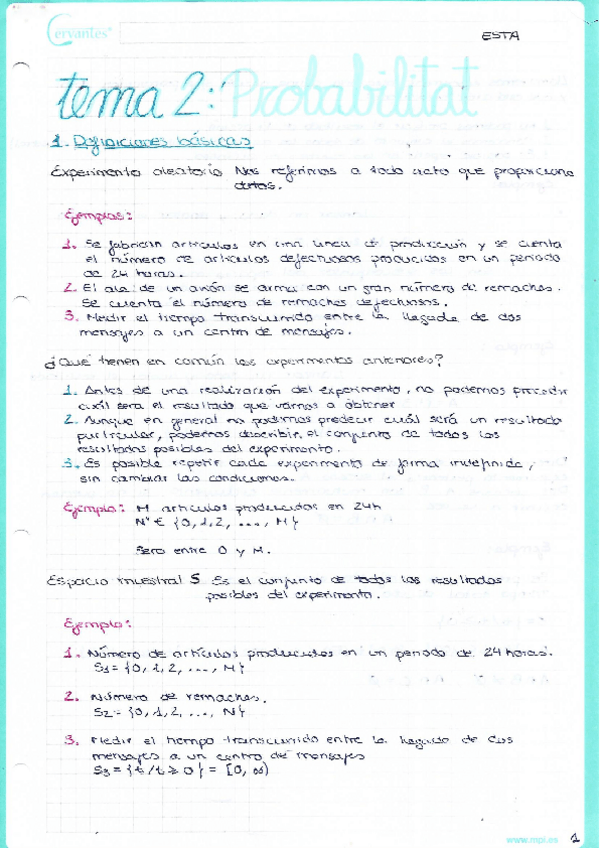 Cervantes
ESTA
tema 2: Probabilitat
1. Definiciones básicas
Experimento aleatorio Nos referimos a todo acto que proporciona
datos.
Ejemplos:
1. Se fabrican artículos en una linea de producción y se cuenta
el número de artículos defectuosos producidos en un periodo
de 24 horas.
2. El ala de un avión se arma con un gran número de remaches.
Se cuenta el número de remaches defectuosos.
3. Medir el tiempo transcurrido entre la llegada de dos
mensajes a un centro de mensajes.
¿Qué tienen en común los experimentos anteriores?
1. Antes de una realización del experimento, no podemos predecir
cuál será el resultado que vamos a obtener
2. Aunque en general no podamos predecir cuál será un resultado
particular, podemos describir el conjunto de todos los
resultados posibles del experimento.
3. Es posible repetir cada experimento de forma indefinida,
sin cambiar las condiciones.
Ejemplo: M artículos producidos en 24h
Nº ∈ {0,1,2, ..., M}
Será entre 0 y M.
Espacio muestral S Es el conjunto de todos los resultados
posibles del experimento.
Ejemplo:
1. Número de artículos producidos en un periodo de 24 horas.
S1 = {0, 1, 2, ..., M}
2. Número de remaches.
S2 = {0, 1, 2, ..., N}
3. Medir el tiempo transcurrido entre la llegada de dos
mensajes a un centro de mensajes
S3 = {t / t ≥ 0} = [0, ∞)
www.mpl.es
1